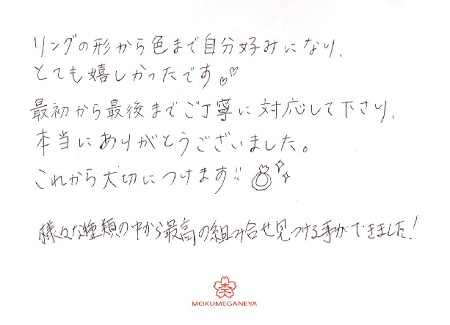 リングの形から色まで自分好みになり、
とても嬉しかったです♡♡
最初から最後までご丁寧に対応して下さり、
本当にありがとうございました。
これから大切につけます!!
様々な種類の中から最高の組み合せ見つける事ができました!
MOKUMEGANEYA